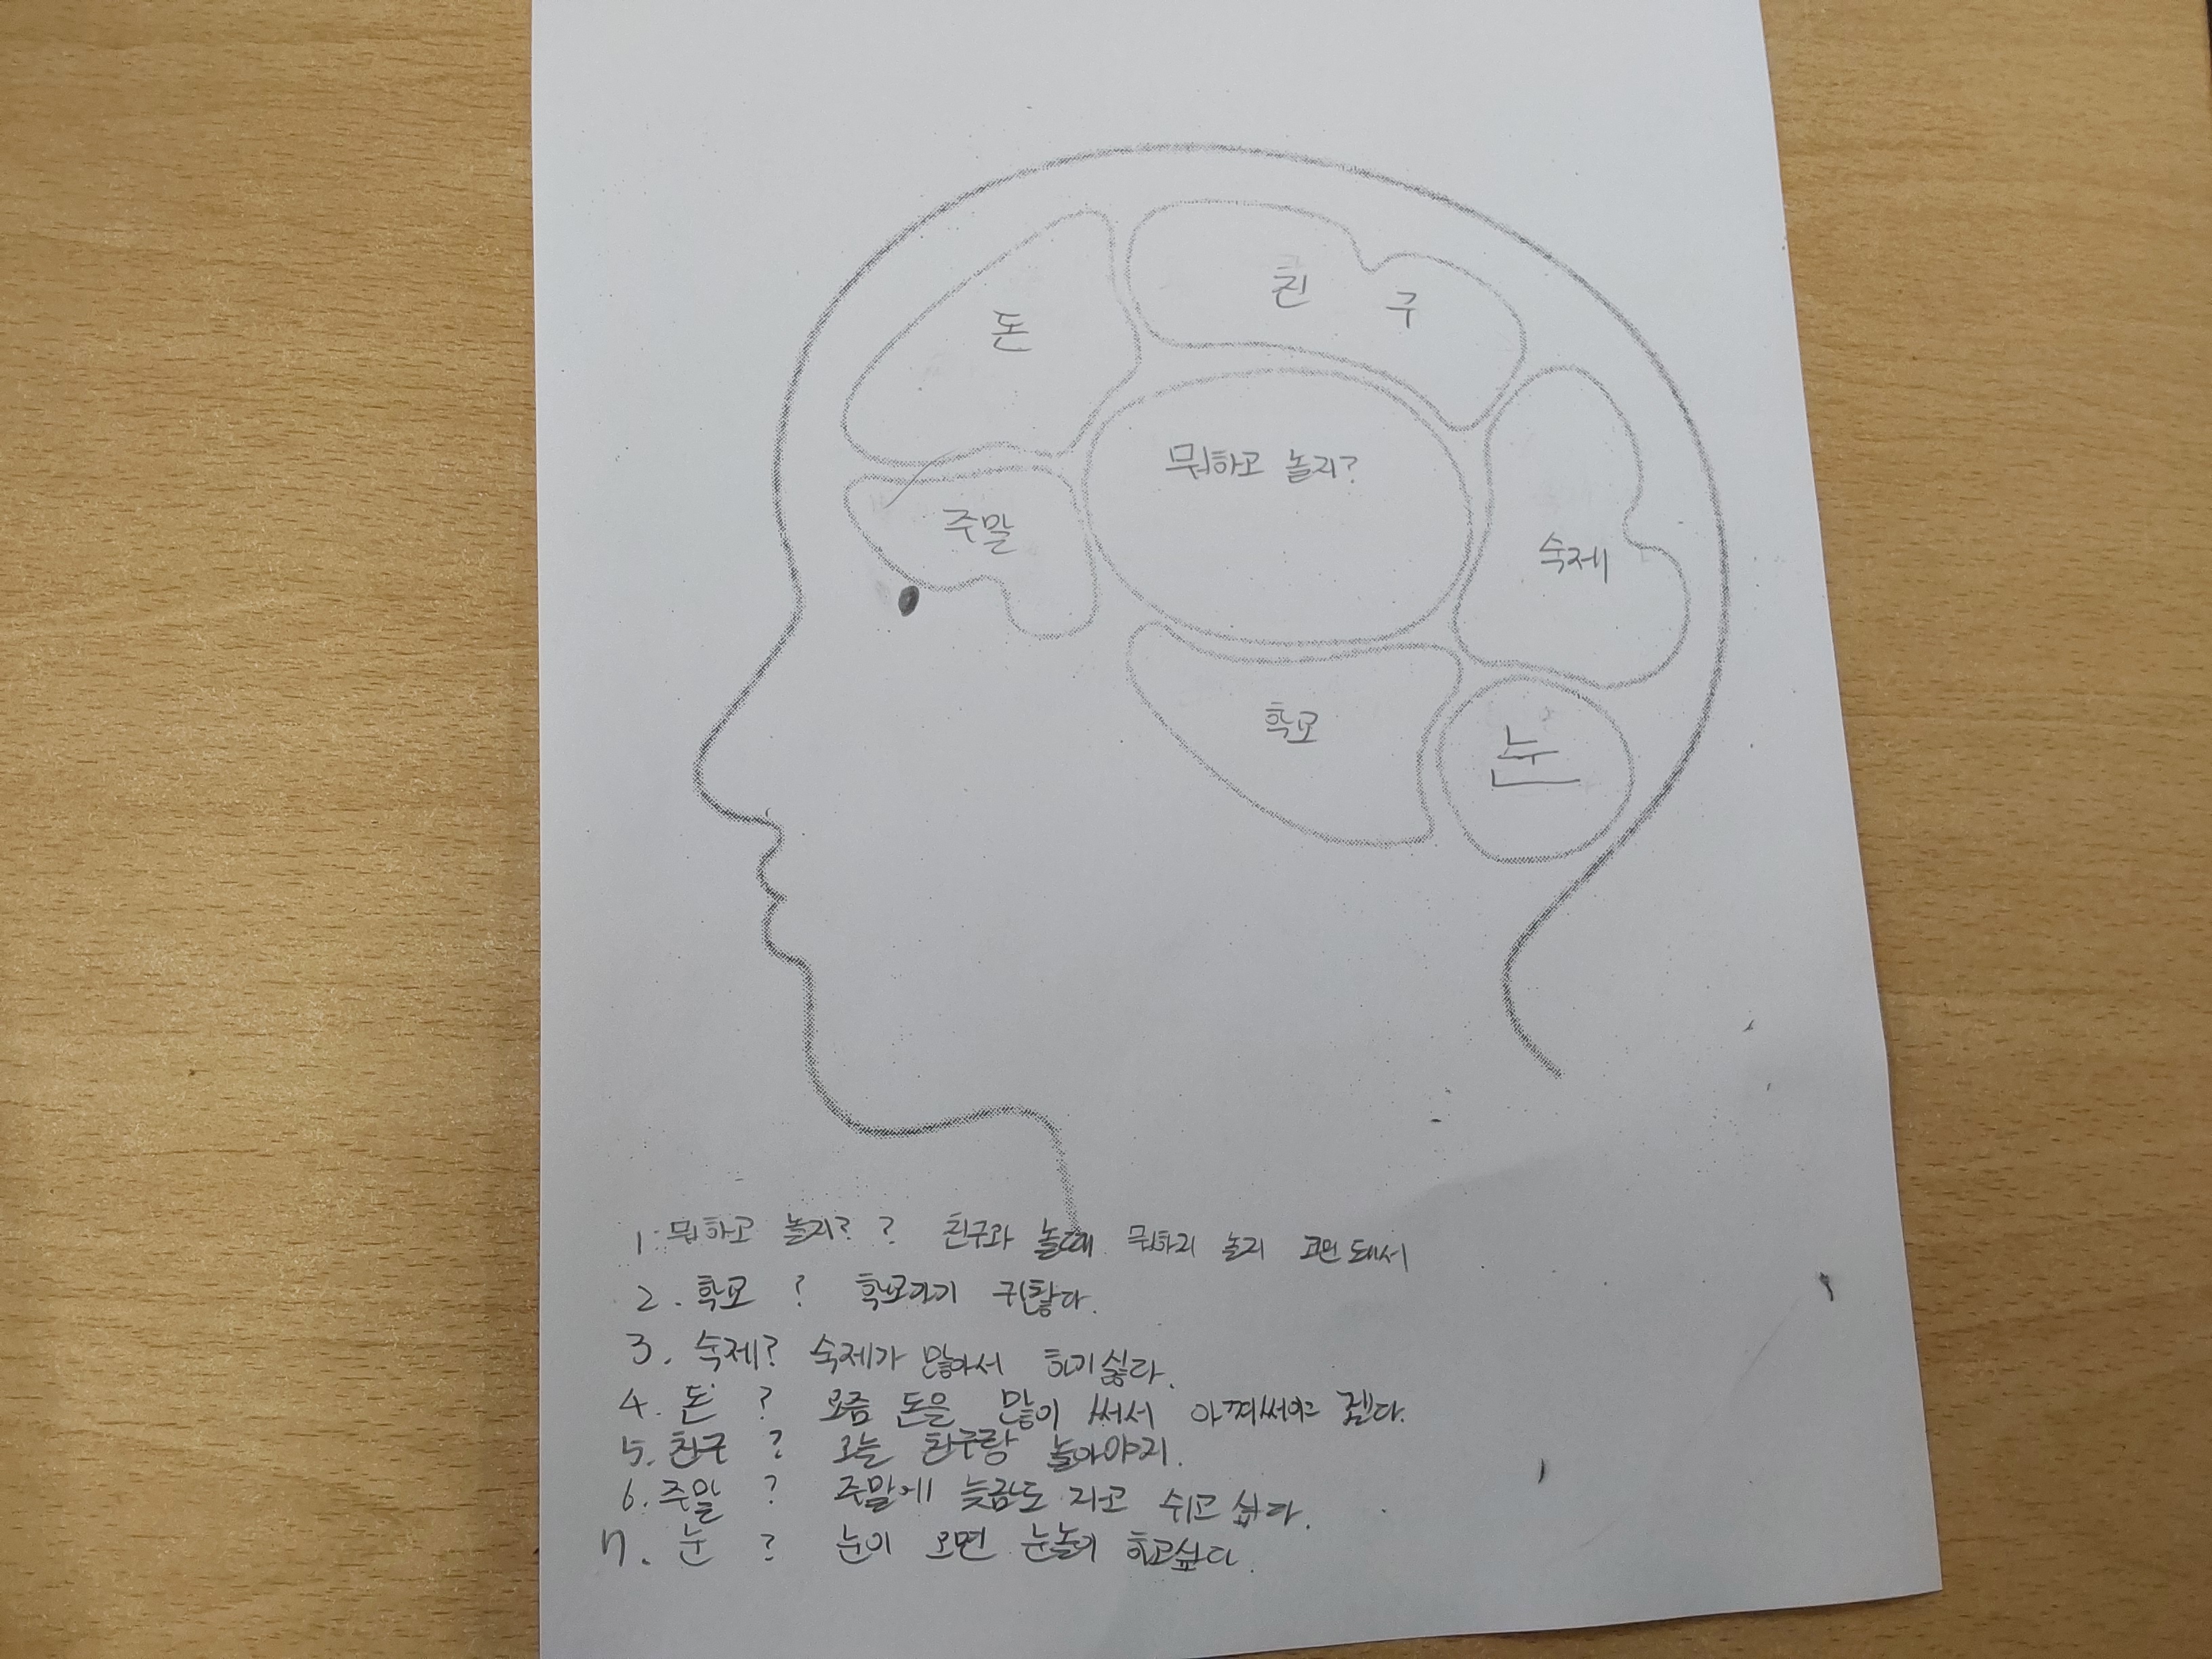 돈
친 구
뭐하고 놀지?
주말
숙제
학교
눈
1. 뭐하고 놀지? ? 친구와 놀때 뭐하지 놀지 고민 돼서
2. 학교 ? 학교가기 귀찮다.
3. 숙제? 숙제가 많아서 하기싫다.
4. 돈 ? 요즘 돈을 많이 써서 아껴써야
5. 친구 ? 오늘 친구랑 놀아야지.
6. 주말 ? 주말에 늦잠도 자고 쉬고 싶다.
7. 눈 ? 눈이 오면 눈놀이 하고싶다.